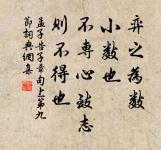 弈之為數
小數也
不專心致志
則不得也
孟子告子章句上第九
節詞典網集